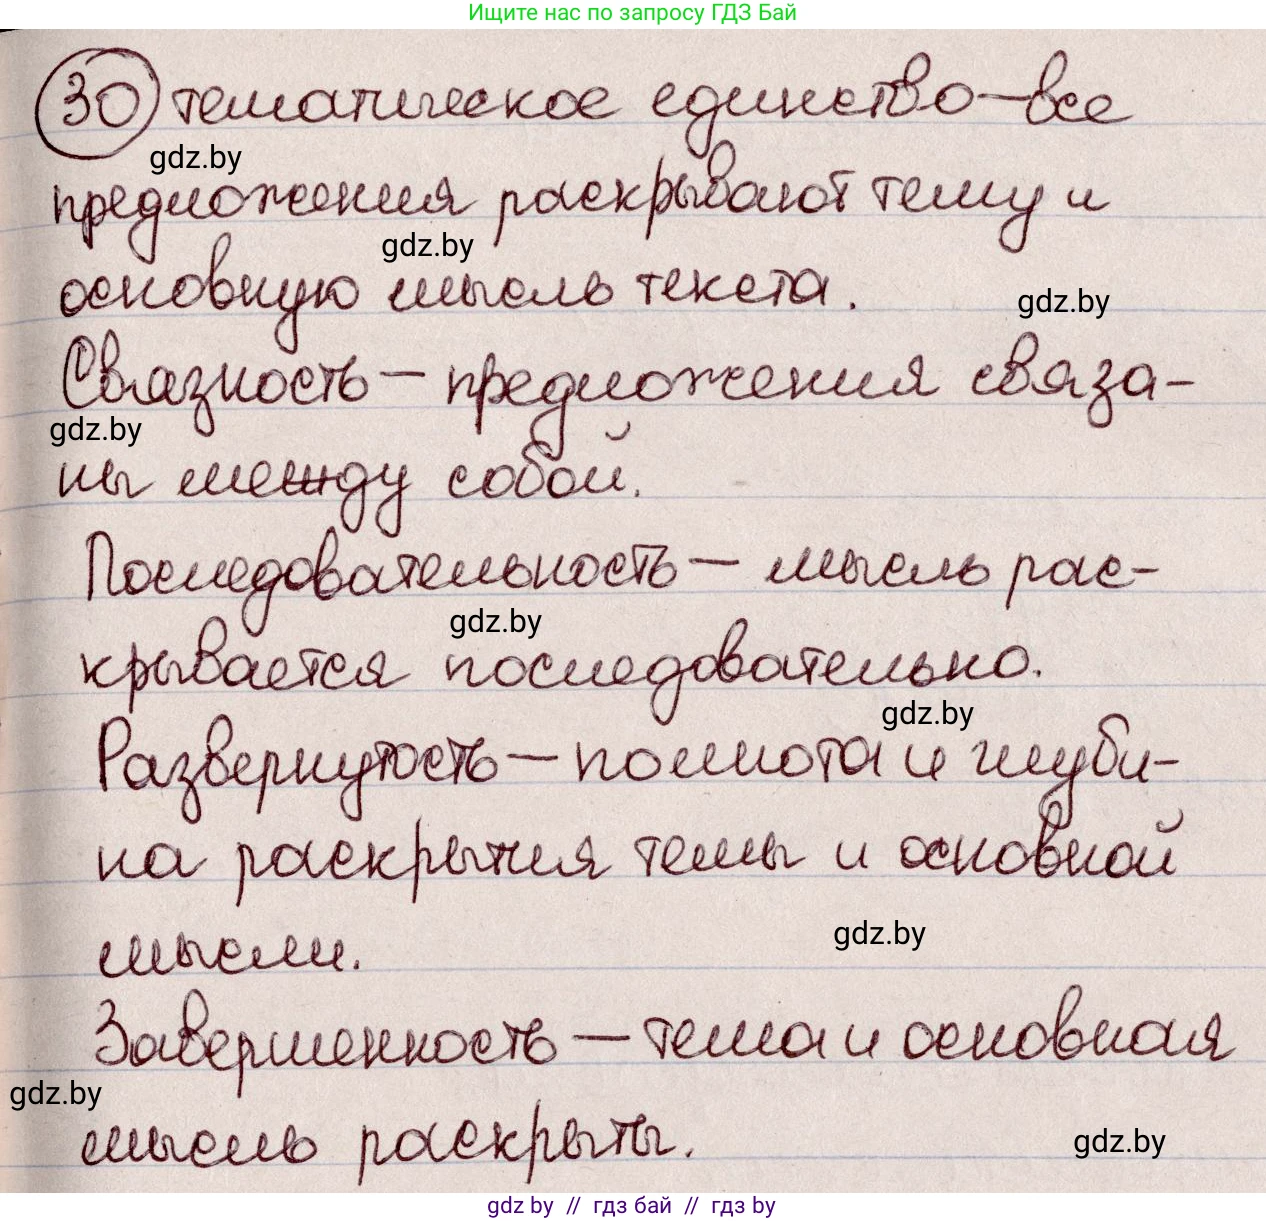 Ищите нас по запросу ГДЗ Бай
30 тематическое единство – все
gdz.by
предложения раскрывают тему и
gdz.by
основную мысль текста.
gdz.by
Связность – предложения связа-
gdz.by
ны между собой.
Последовательность – мысль рас-
gdz.by
крывается последовательно.
gdz.by
Развернутость – полнота и глуби-
на раскрытия темы и основной
gdz.by
мысли.
Завершенность – тема и основная
gdz.by
мысль раскрыты.
gdz.by
gdz by // гдз бай // гдз by